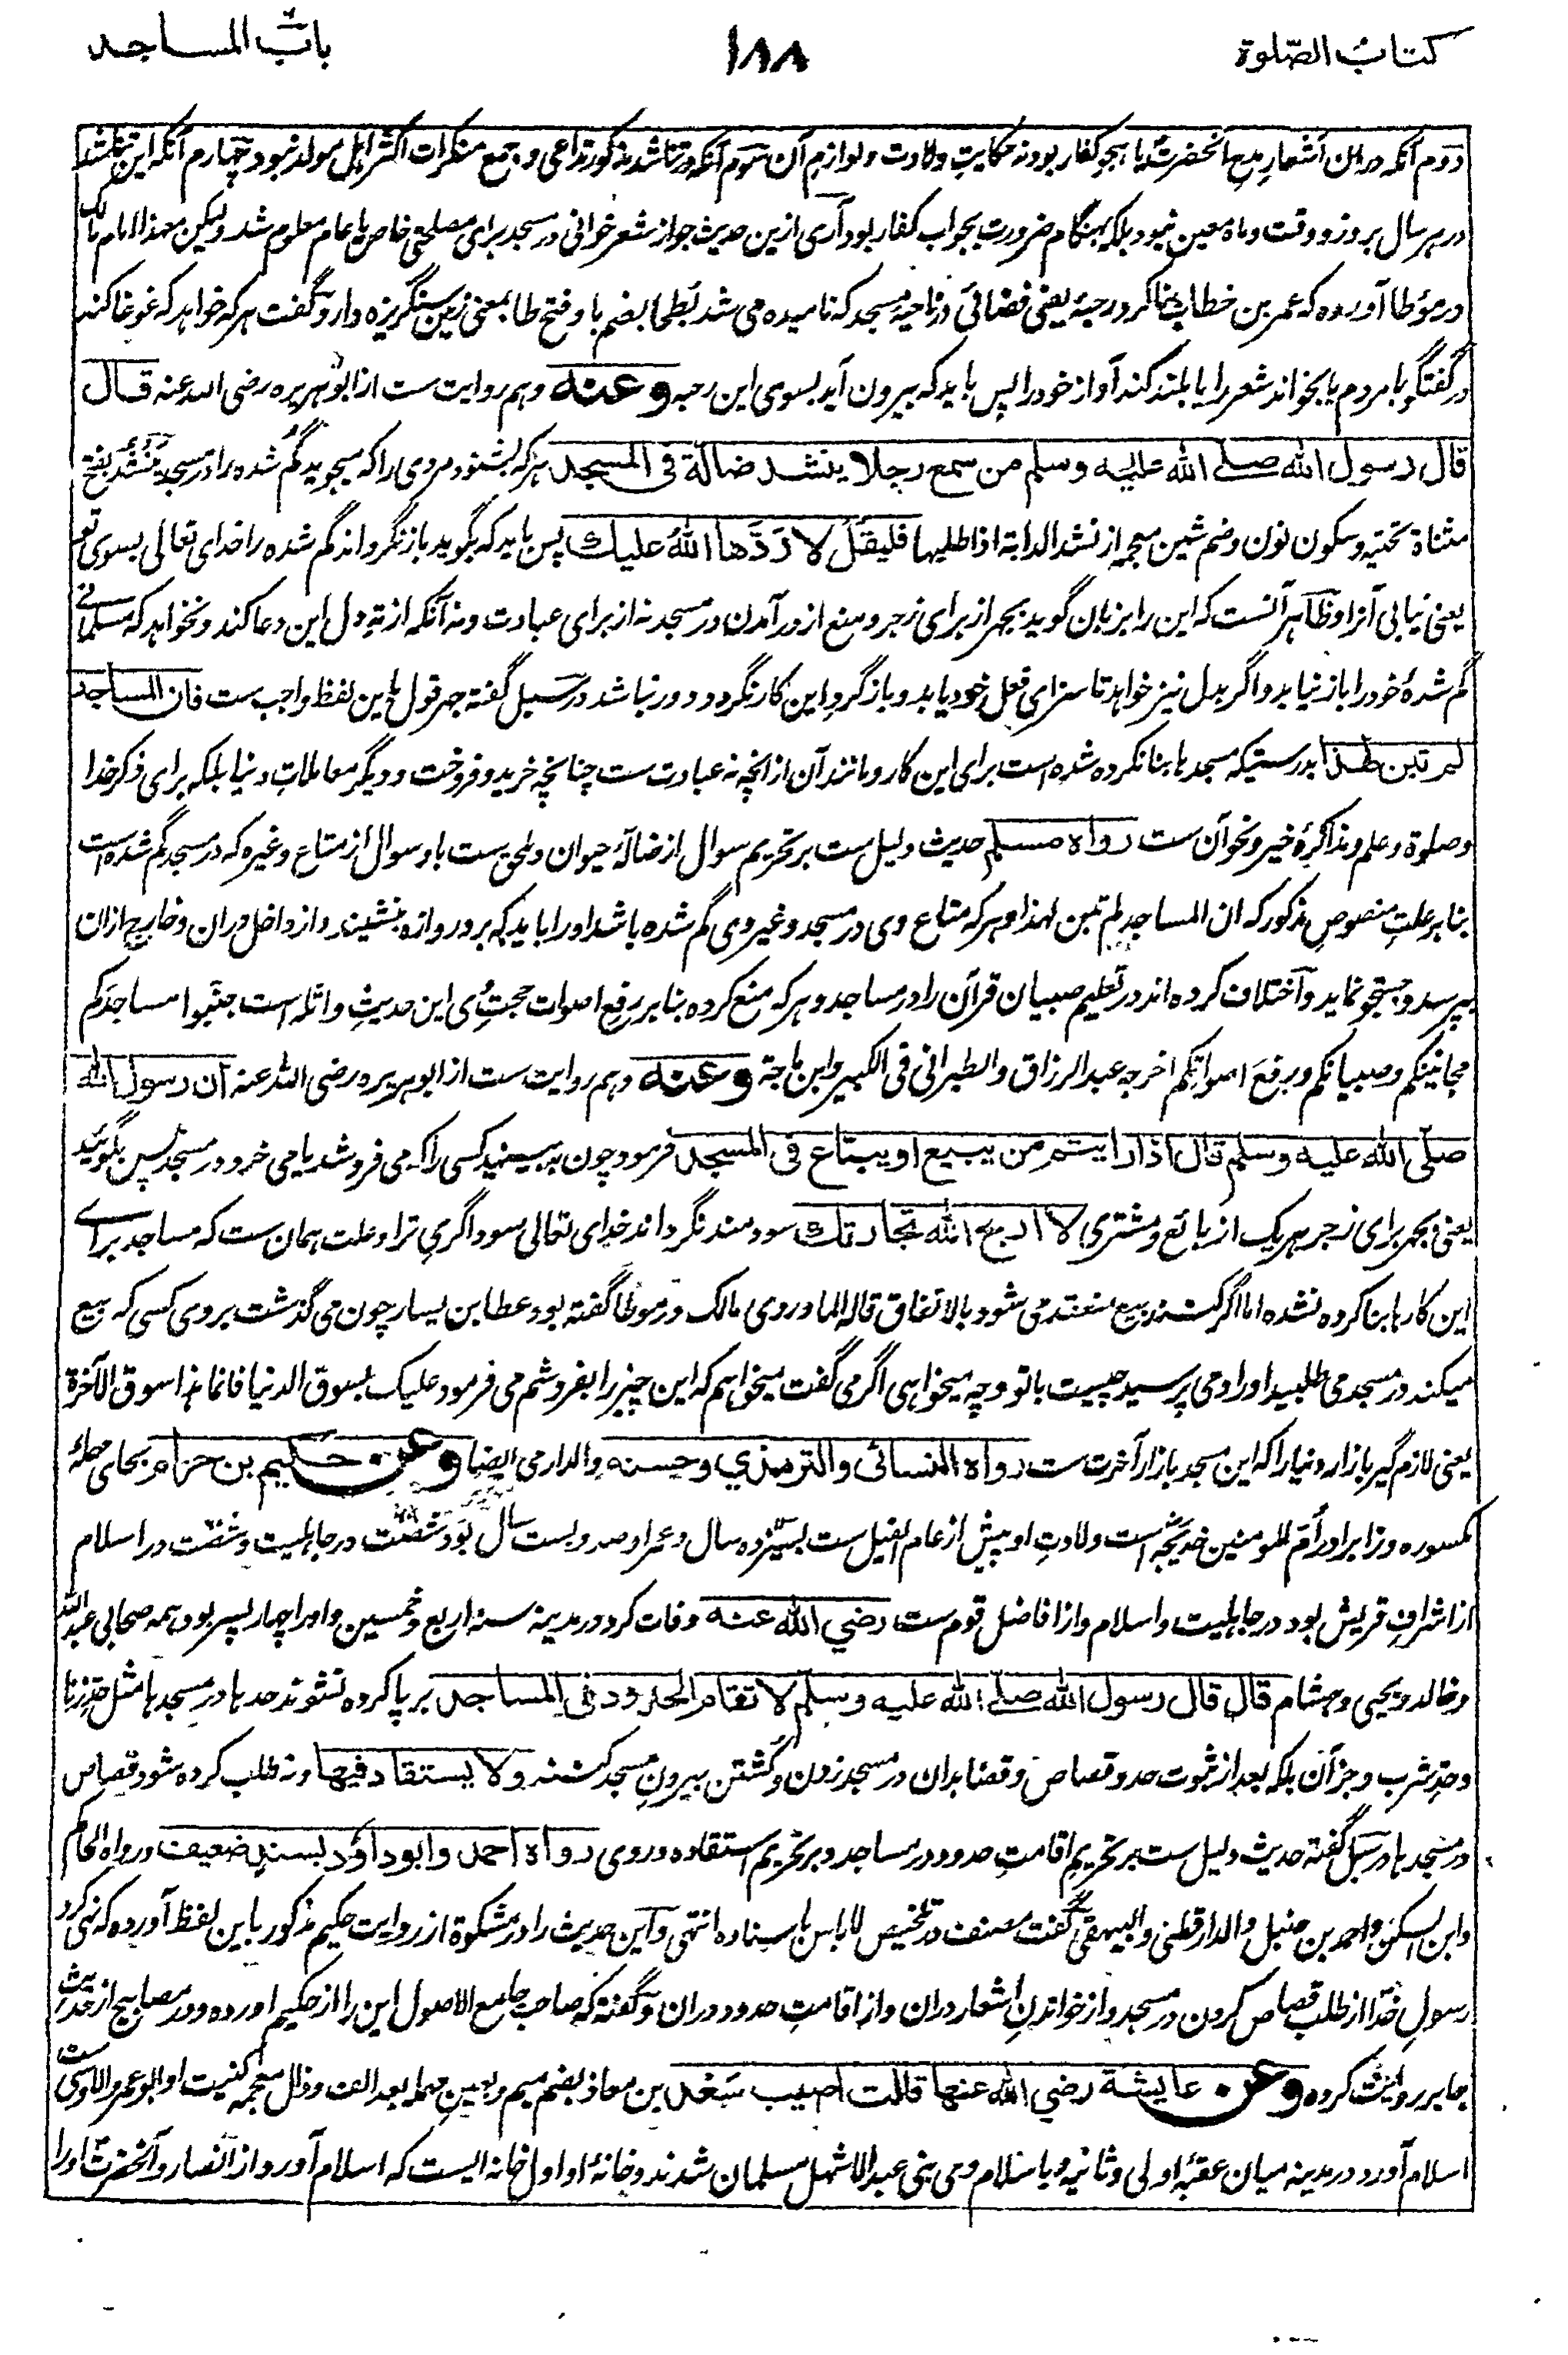 کتاب الصّلوة
١٨٨
باب المساجد
دوم آنکه دران اشعار مدح آنحضرت یا هجو کفار بود نه حکایت ولادت و لوازم آن سوم آنکه در تناشد مذکور تداعی و جمع منکرات اکثر اہل مولد نبود چهارم آنکه این تناشد
در ہر سال بروز و وقت و ماه معین نبود بلکه بہنگام ضرورت بجواب کفار بود آری ازین حدیث جواز شعر خوانی در مسجد برای مصلحتی خاص یا عام معلوم شد ولیکن مہذا امام مالک
در مؤطا آورده که عمر بن خطاب بنا کرد رحبهٔ یعنی فضائی در ناحیهٔ مسجد که نامیده می شد بُطَحا بضم با و فتح طا بمعنی زمین سنگریزه دار و گفت ہر که خواہد که غوغا کند
در گفتگو با مردم یا بخواند شعر را یا بلند کند آواز خود را پس باید که بیرون آید بسوی این رحبه وعنه و ہم روایت ست از ابو ہریره رضی الله عنه قال
قال رسول الله صلے الله علیه وسلم من سمع رجلا ینشد ضالة فی المسجد ہر که بشنود مردی را که میجوید گم شده را در مسجد یَنْشُدُ بفتح
مثناة تحتیه و سکون نون و ضم شین معجمه از نشد الدابة اذا طلبها فلیقل لا رَدَّها اللهُ علیك پس باید که بگوید باز نگرداند گم شده را خدای تعالی بسوی تو
یعنی نیابی آنرا و ظاہر آنست که این را بزبان گوید بجہر از برای زجر و منع از در آمدن در مسجد نه از برای عبادت و نه آنکه از تهِ دل این دعا کند و نخواہد که مسلمانے
گم شدهٔ خود را باز نیابد و اگر بدل نیز خواہد تا سزای فعل خود یابد و باز گردِ این کار نگردد دور نباشد در سبل گفته جہر قول باین لفظ واجب ست فان المساجد
لم تبن لهذا بدرستیکه مسجدہا بنا نکرده شده است برای این کار و مانند آن از انچه نه عبادت ست چنانچه خرید و فروخت و دیگر معاملات دنیا بلکه برای ذکر خدا
وصلوة و علم و مذاکرهٔ خیر و نحو آن ست رواه مسلم حدیث دلیل ست بر تحریم سوال از ضالّهٔ حیوان و ملحق ست باو سوال از متاع و غیره که در مسجد گم شده است
بنا بر علت منصوص مذکور که ان المساجد لم تبن لهذا و ہر که متاع وی در مسجد و غیر وی گم شده باشد او را باید که بر دروازه بنشیند و از داخل دران و خارج ازان
بپرسد و جستجو نماید و اختلاف کرده اند در تعلیم صبیان قرآن را در مساجد و ہر که منع کرده بنا بر رفع اصوات حجت وی این حدیث واثله است جنّبوا مساجدکم
مجانینکم و صبیانکم و رفعَ اصواتکم اخرجه عبد الرزاق والطبرانی فی الکبیر وابن ماجة وعنه و ہم روایت ست از ابو ہریره رضی الله عنه ان رسول الله
صلّی الله علیه وسلم قال اذا رایتم من یبیع او یبتاع فی المسجد فرمود چون به بینید کسی را که می فروشد یا می خرد در مسجد پس بگوئید
یعنی بجہر برای زجر ہر یک از بائع و مشتری لا اربح الله تجارتك سودمند نگرداند خدای تعالی سوداگری ترا و علت ہمان ست که مساجد برائے
این کارہا بنا کرده نشده اما اگر کنند بیع منعقد می شود بالاتفاق قاله الماوردی مالک در موطا گفته بود عطا بن یسار چون می گذشت بروی کسی که بیع
میکند در مسجد می طلبید او را و می پرسید چیست با تو و چه میخواہی اگر می گفت میخواہم که این چیز را بفروشم می فرمود علیک بسوق الدنیا فانما ہذا سوق الآخرة
یعنی لازم گیر بازار دنیا را که این مسجد بازار آخرت ست رواه النسائی والترمذي وحسنه والدارمی ایضا وعن حکیم بن حزام بحای مهملهٔ
مکسوره و زا برادر امّ المومنین خدیجہ است ولادت او پیش از عام الفیل ست بسیزده سال و عمر او صد و بست سال بود شصت در جاہلیت و شصت در اسلام
از اشراف قریش بود در جاہلیت و اسلام و از افاضل قوم ست رضي الله عنه وفات کرد در مدینه سنه اربع و خمسین و او را چهار پسر بود ہمه صحابی عبد الله
و خالد و یحیی و ہشام قال قال رسول الله صلے الله علیه وسلم لا تقام الحدود فی المساجد بر پا کرده نشوند حدہا در مسجدہا مثل حدِ زنا
و حدِ شرب و جز آن بلکه بعد از ثبوت حد و قصاص و قضا بدان در مسجد زدن و کُشتن بیرونِ مسجد کنند ولا یستقاد فیها و نه طلب کرده شود قصاص
در مسجدہا در سبل گفته حدیث دلیل ست بر تحریم اقامتِ حدود در مساجد و بر تحریم استقاده در وی رواه احمد وابوداؤد بسند ضعیف و رواه الحاکم
وابن السکن واحمد بن حنبل والدارقطنی والبیهقی گفت مصنف در تلخیص لا باس باسناده انتهی و این حدیث را در مشکوة از روایت حکیم مذکور باین لفظ آورده که نهی کرد
رسولِ خدا از طلب قصاص کردن در مسجد و از خواندنِ اشعار دران و از اقامتِ حدود دران و گفته که صاحب جامع الاصول این را از حکیم آورده و در مصابیح از حدیث
جابر روایت کرده وعن عایشة رضي الله عنها قالت اصیب سَعْد بن معاذ بضم میم و بعین مهمله بعد الف و ذال معجمه کنیت او ابو عمرو الاوسی ست
اسلام آورد در مدینه میان عقبهٔ اولی و ثانیه و باسلام وی بنی عبد الاشہل مسلمان شدند و خانهٔ او اول خانه ایست که اسلام آورد از انصار و آنحضرت او را